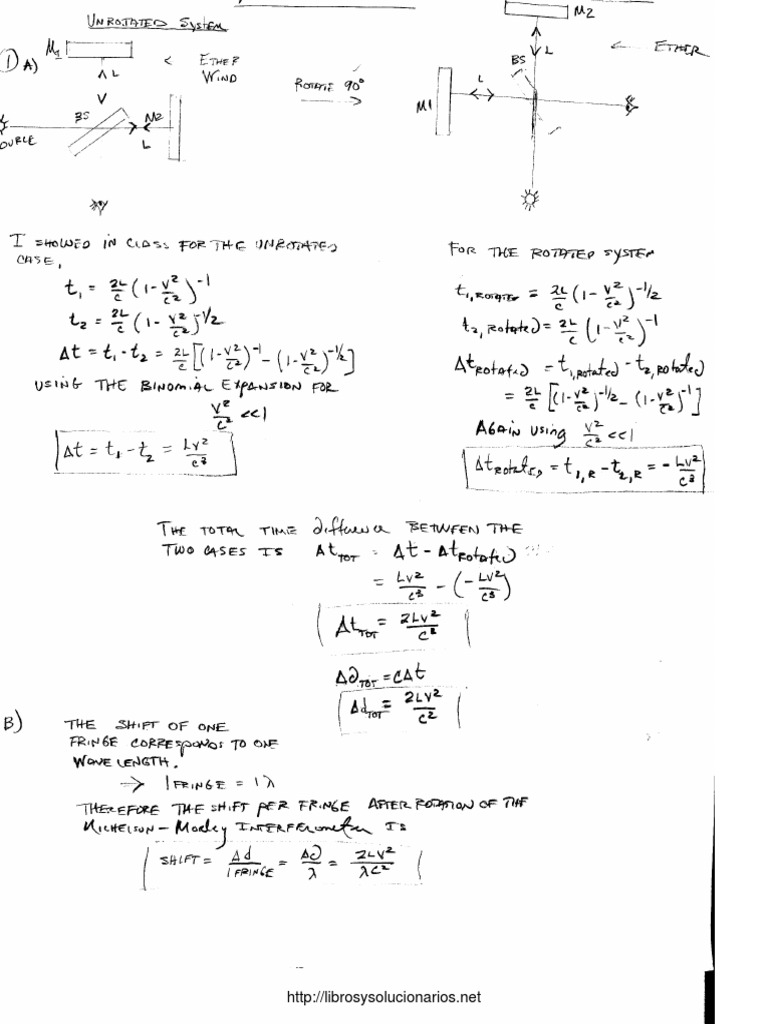 UNROTATED SYSTEM
1 A)
M1
L
← ETHER WIND
BS
M2
L
ROTATE 90°
M2
L
← ETHER
BS
L
M1
I SHOWED IN CLASS FOR THE UNROTATED
CASE,
t₁ = 2L/c (1 - v²/c²)⁻¹
t₂ = 2L/c (1 - v²/c²)^-1/2
Δt = t₁ - t₂ = 2L/c [(1 - v²/c²)⁻¹ - (1 - v²/c²)^-1/2]
USING THE BINOMIAL EXPANSION FOR
v²/c² <<1
Δt = t₁ - t₂ = Lv²/c³
FOR THE ROTATED SYSTEM
t₁,ROTATED = 2L/c (1 - v²/c²)^-1/2
t₂,Rotated = 2L/c (1 - v²/c²)⁻¹
ΔtRotated = t₁,Rotated - t₂,Rotated
= 2L/c [(1 - v²/c²)^-1/2 - (1 - v²/c²)⁻¹]
AGAIN USING v²/c² <<1
ΔtRotated = t₁,R - t₂,R = - Lv²/c³
THE TOTAL TIME difference BETWEEN THE
TWO CASES IS ΔtTOT = Δt - ΔtRotated
= Lv²/c³ - (- Lv²/c³)
ΔtTOT = 2Lv²/c³
ΔdTOT = cΔt
ΔdTOT = 2Lv²/c²
B) THE SHIFT OF ONE
FRINGE CORRESPONDS TO ONE
WAVELENGTH.
→ 1 FRINGE = 1λ
THEREFORE THE SHIFT PER FRINGE AFTER ROTATION OF THE
MICHELSON - Morley INTERFEROMETER IS
SHIFT = Δd/1 FRINGE = Δd/λ = 2LV²/λC²
http://librosysolucionarios.net